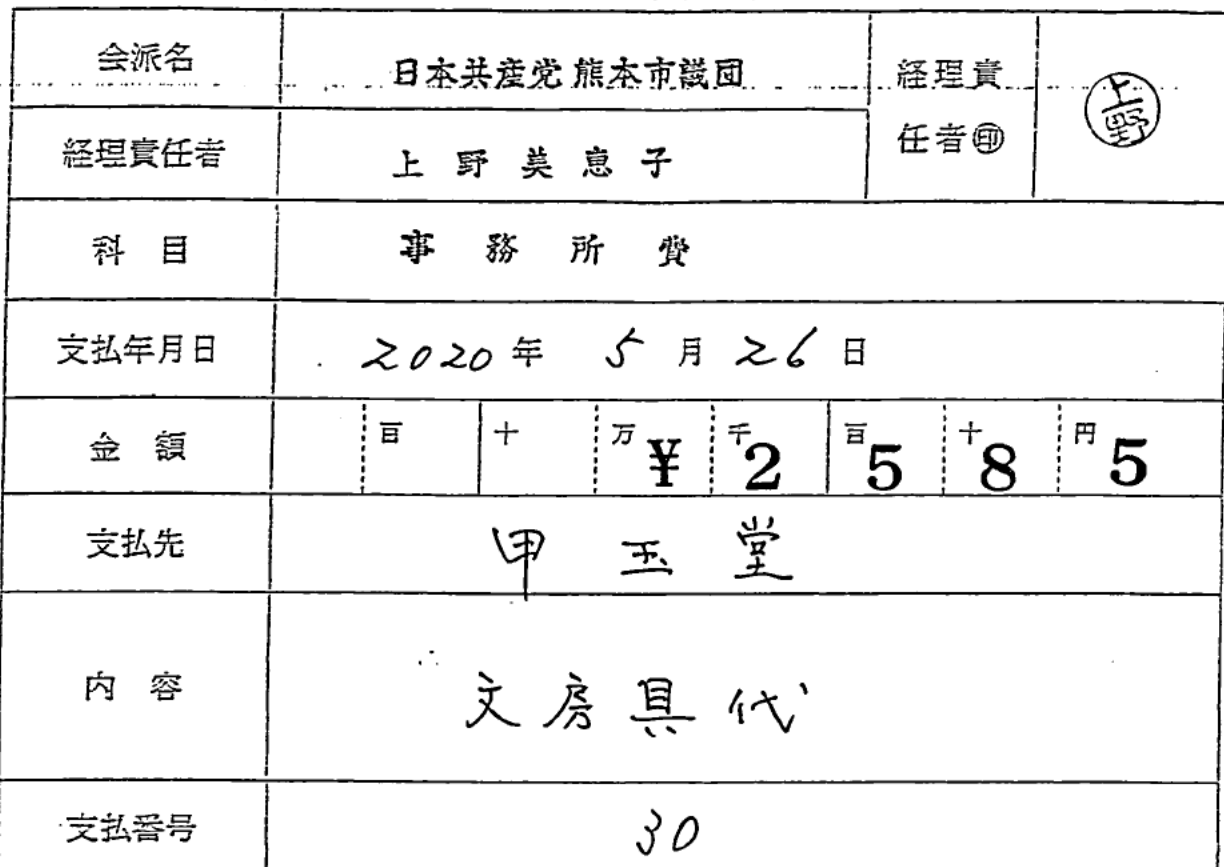 会派名 日本共産党 熊本市議団 経理責任者㊞ 上野
経理責任者 上野美恵子
科目 事務所費
支払年月日 2020年 5月26日
金額 百 十 万¥ 千2 百5 十8 円5
支払先 甲玉堂
内容 文房具代
支払番号 30